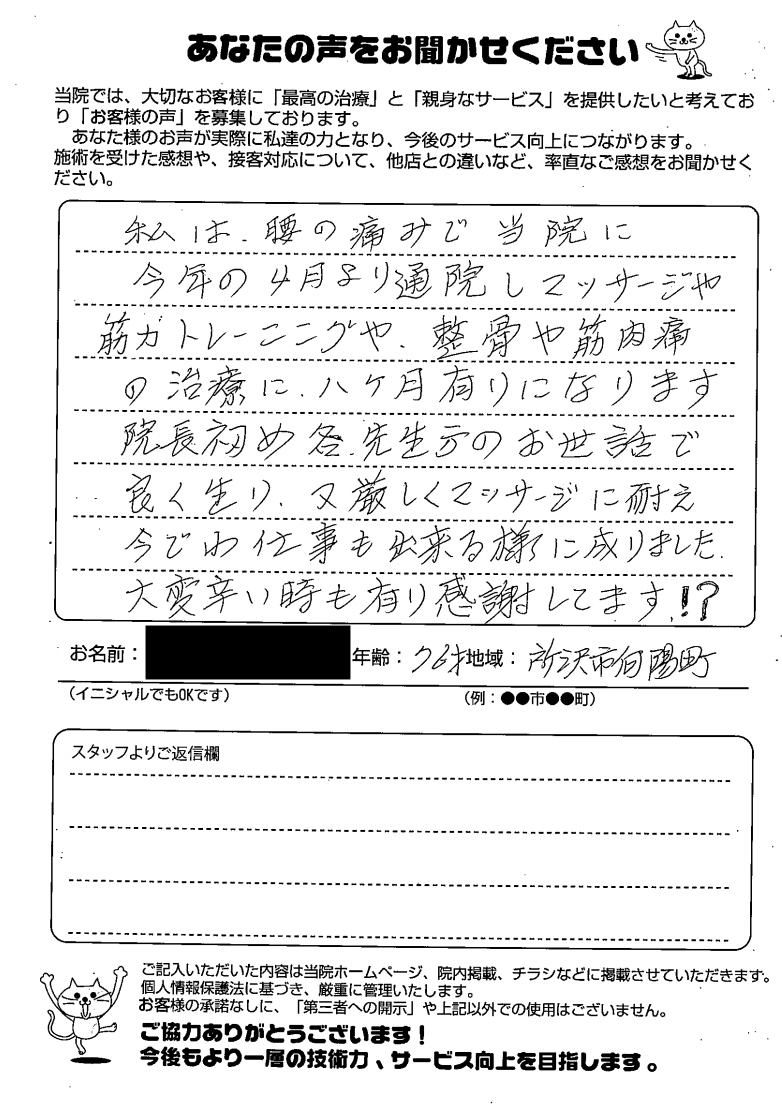 あなたの声をお聞かせください
当院では、大切なお客様に「最高の治療」と「親身なサービス」を提供したいと考えてお
り「お客様の声」を募集しております。
あなた様のお声が実際に私達の力となり、今後のサービス向上につながります。
施術を受けた感想や、接客対応について、他店との違いなど、率直なご感想をお聞かせく
ださい。
私は、腰の痛みで当院に
今年の4月より通院しマッサージや
筋力トレーニングや、整骨や筋肉痛
の治療に、八ケ月有りになります
院長初め各、先生方のお世話で
良く生り、又厳しくマッサージに耐え
今でわ仕事も出来る様に成りました。
大変辛い時も有り感謝してます!?
お名前: 年齢:76才 地域:所沢市向陽町
(イニシャルでもOKです) (例:●●市●●町)
スタッフよりご返信欄
ご記入いただいた内容は当院ホームページ、院内掲載、チラシなどに掲載させていただきます。
個人情報保護法に基づき、厳重に管理いたします。
お客様の承諾なしに、「第三者への開示」や上記以外での使用はございません。
ご協力ありがとうございます!
今後もより一層の技術力、サービス向上を目指します。